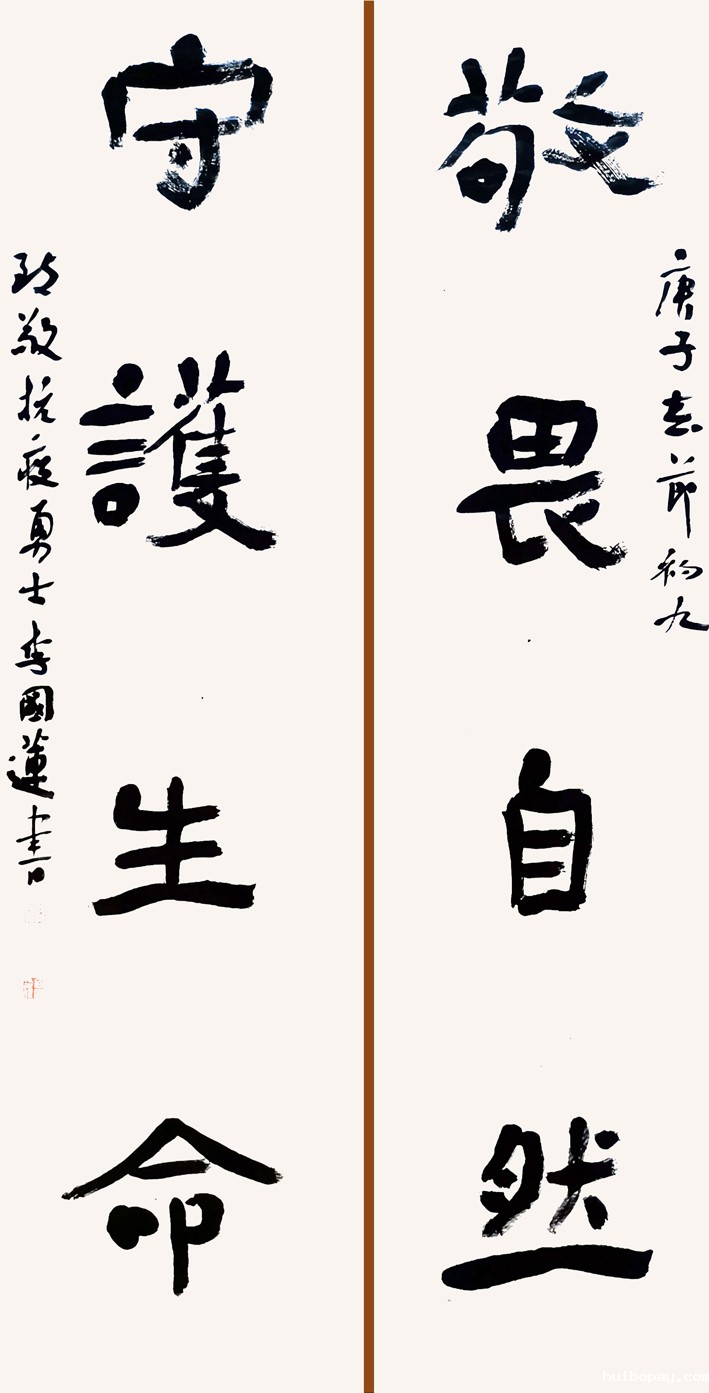 敬畏自然
庚子春節初九
守護生命
致敬抗疫勇士李國蓮書
huibopay.com